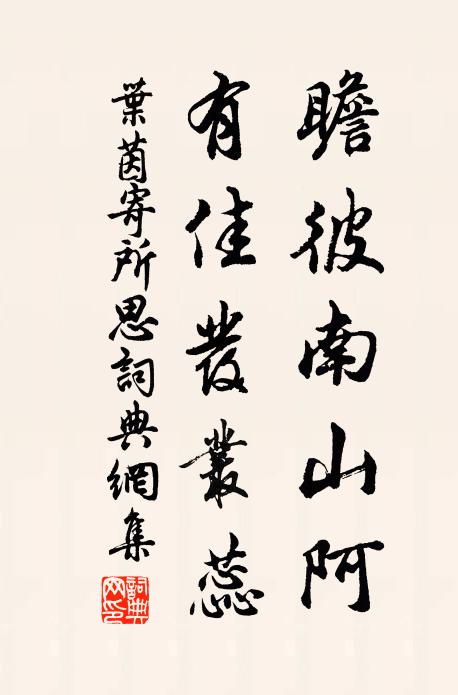 瞻彼南山阿
有佳發叢蕊
葉茵寄所思詞典網集
詞典网印